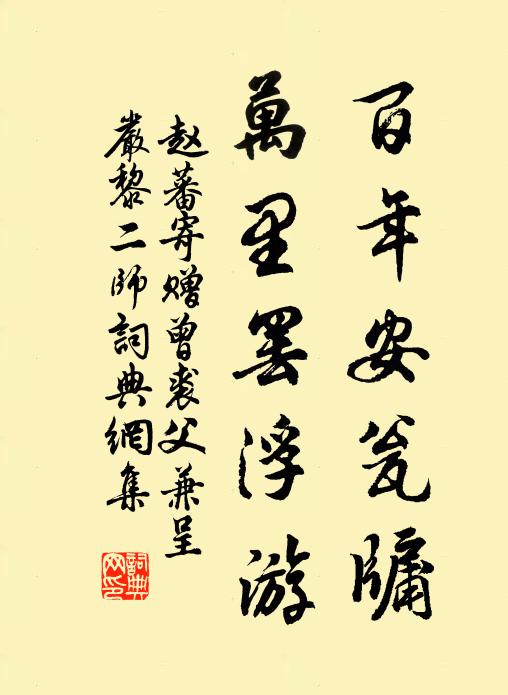 百年安瓮牖
萬里罢浮游
赵蕃寄赠曾裘父兼呈
嚴黎二師詞典網集
詞典
网印